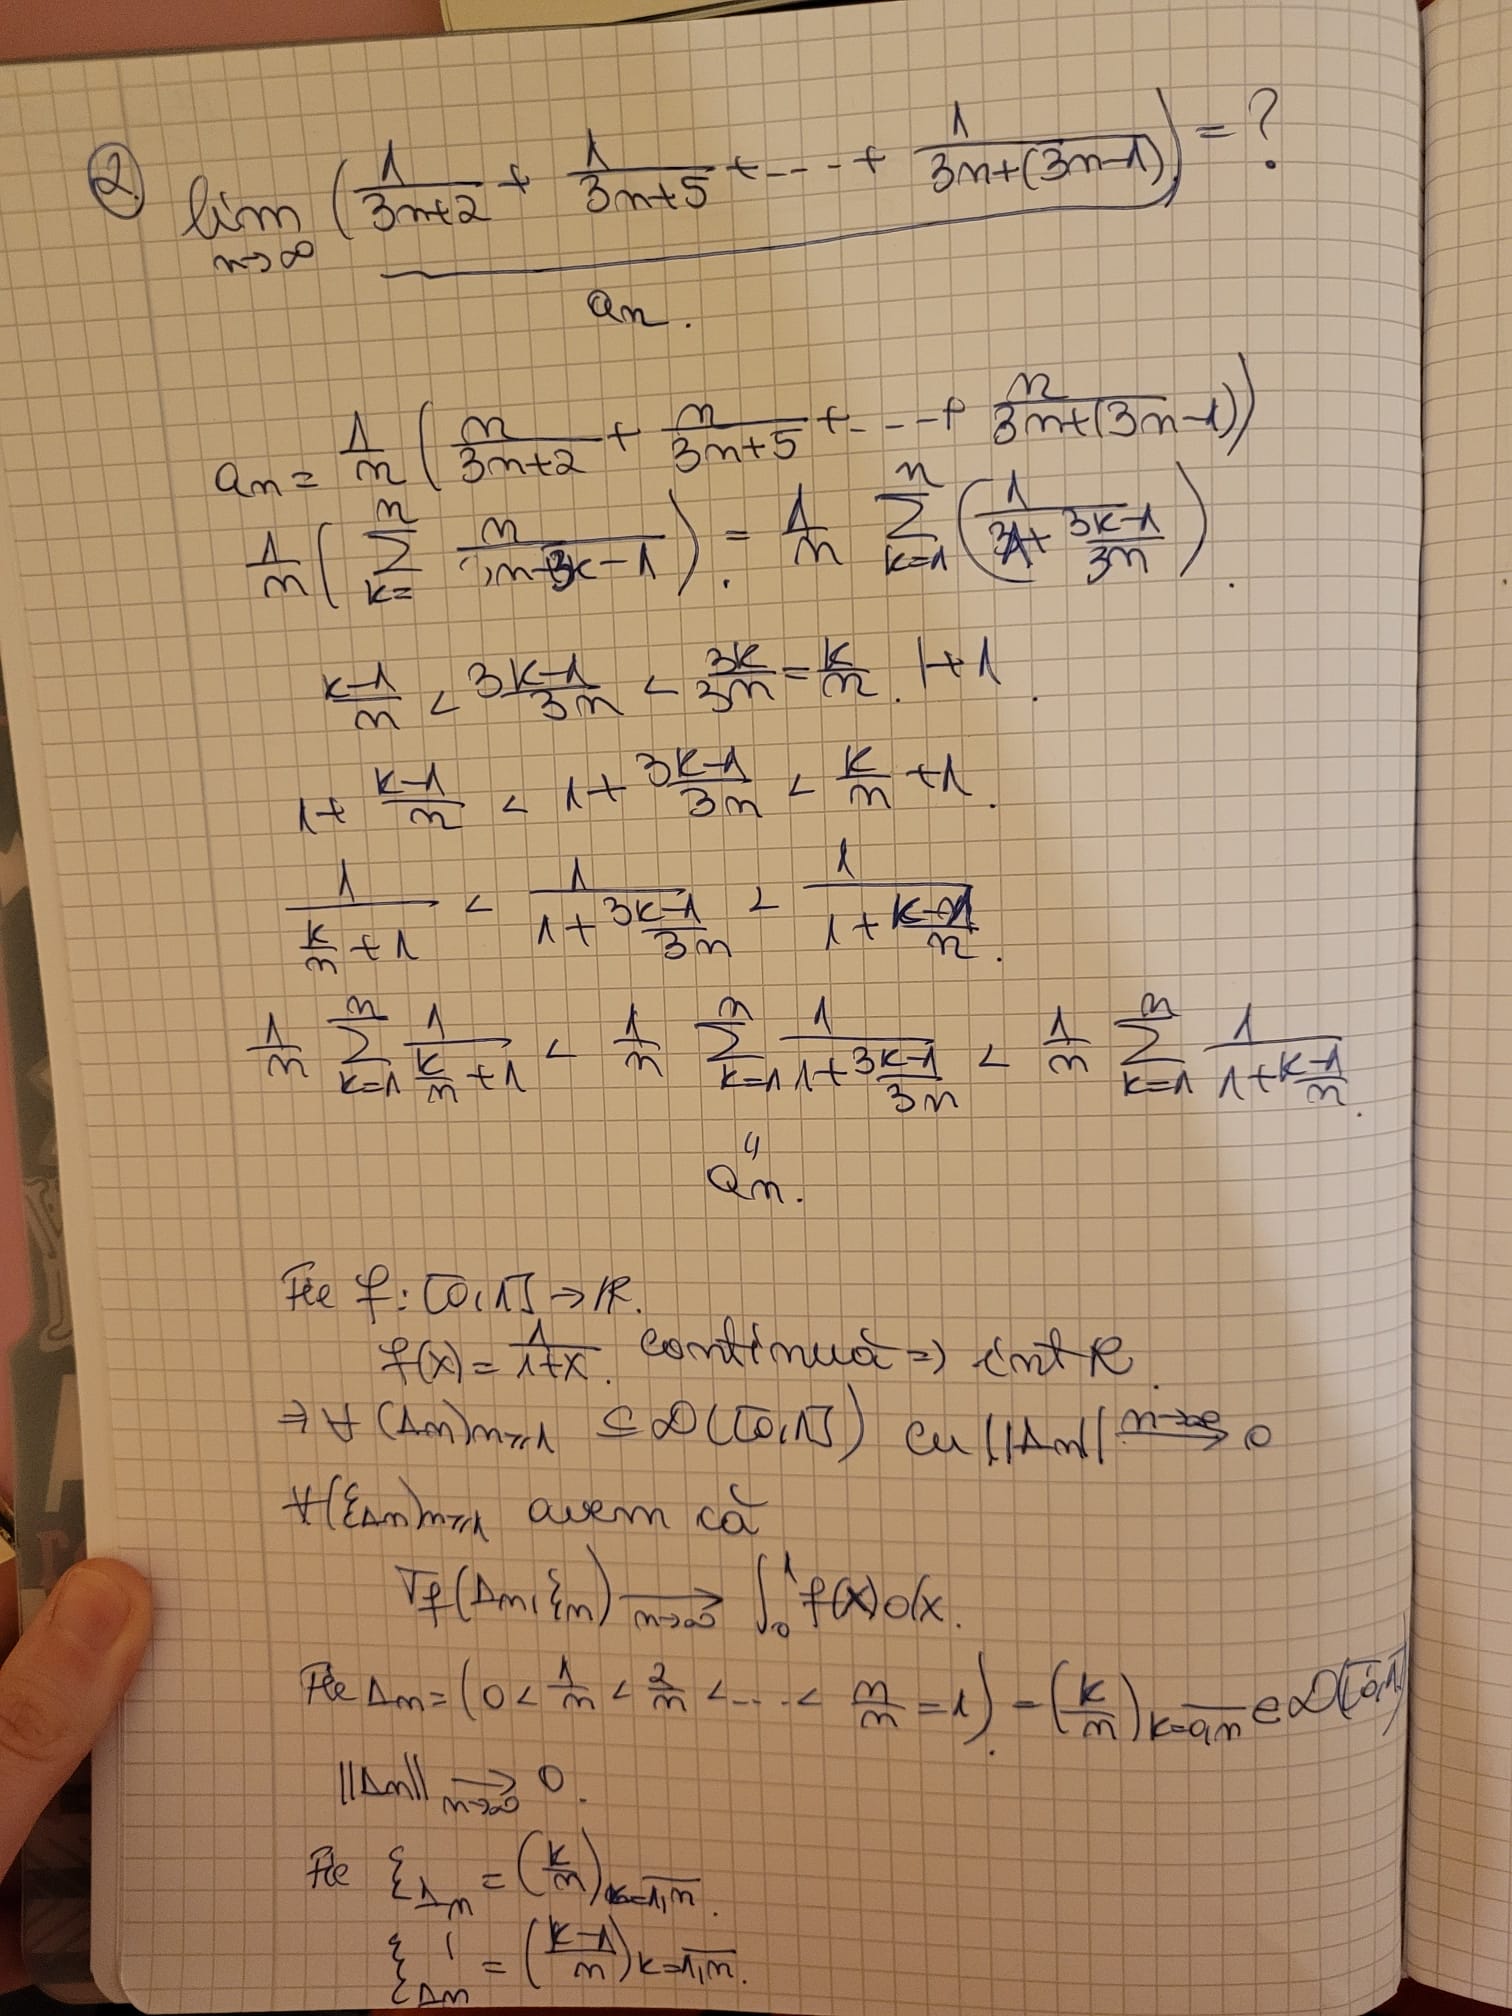 ② lim n→∞ (1/(3n+2) + 1/(3n+5) + --- + 1/(3n+(3n-1))) = ?
an.
an = 1/n (n/(3n+2) + n/(3n+5) + --- + n/(3n+(3n-1)))
1/n (∑ k= n n/( n+3k-1)). = 1/n ∑ k=1 n (1/( + (3k-1)/3n)).
(k-1)/n < (3k-1)/3n < 3k/3n = k/n. |+1.
1+ (k-1)/n < 1+ (3k-1)/3n < k/n +1.
1/(k/n + 1) < 1/(1+ (3k-1)/3n) < 1/(1+ (k-1)/n).
1/n ∑ k=1 n 1/(k/n +1) < 1/n ∑ k=1 n 1/(1+ (3k-1)/3n) < 1/n ∑ k=1 n 1/(1+ (k-1)/n).
"
an.
Fie f: [0,1] → ℝ.
f(x) = 1/(1+x). continuă ⇒ int R.
⇒ ∀ (Δn)n≥1 ⊆ D([0,1]) cu ||Δn|| n→∞ → 0
∀(ξΔn)n≥1 avem că
σf(Δn, ξn) → n→∞ ∫₀¹ f(x)dx.
Fie Δn = (0 < 1/n < 2/n < --- < n/n = 1). = (k/n) k=0,n ∈ D([0,1])
||Δn|| → n→∞ 0.
Fie ξΔn = (k/n) k=1,n.
ξ'Δn = ((k-1)/n) k=1,n.